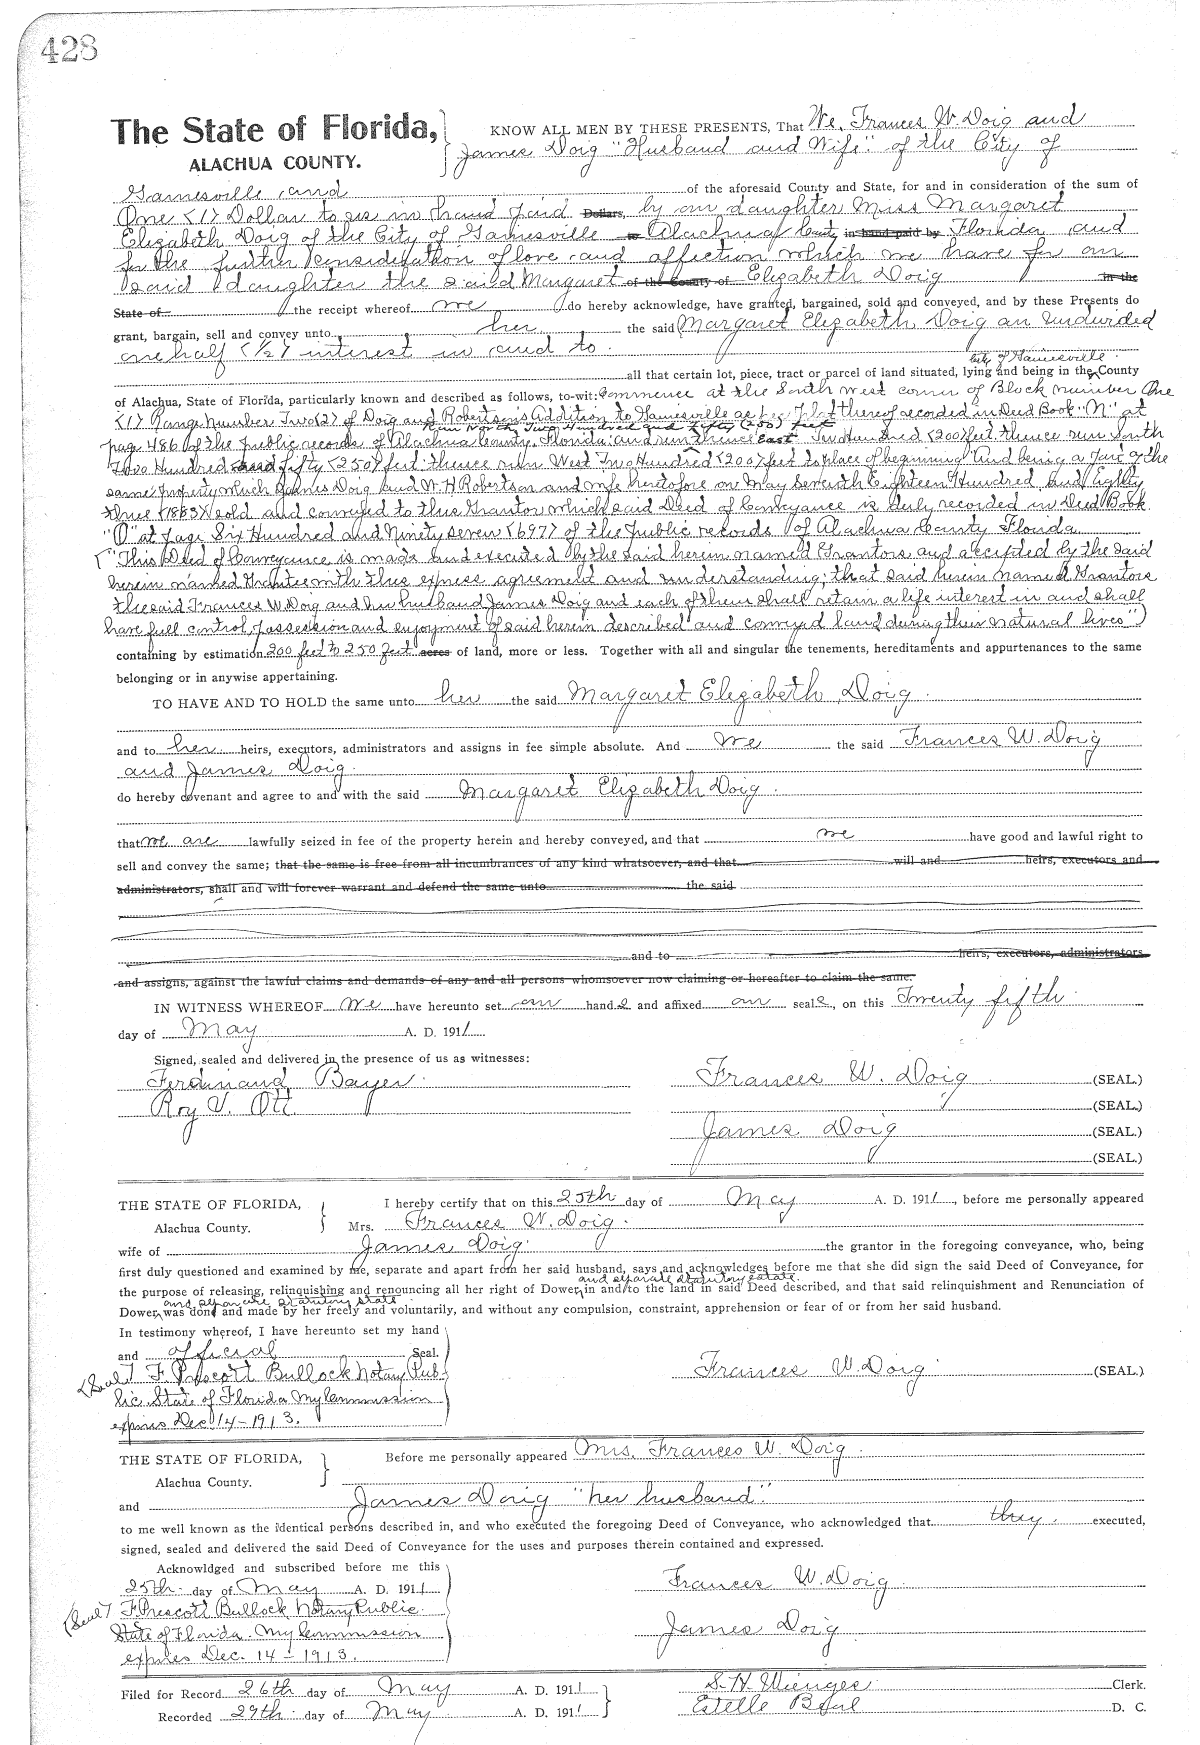 428
The State of Florida, KNOW ALL MEN BY THESE PRESENTS, That We, Frances W. Doig and
ALACHUA COUNTY. James Doig "Husband and Wife" of the City of
Gainesville and of the aforesaid County and State, for and in consideration of the sum of
One (1) Dollar to us in hand paid Dollars, by our daughter Miss Margaret
Elizabeth Doig of the City of Gainesville Alachua County in hand paid by Florida and
for the further consideration of love and affection which we have for our
said daughter the said Margaret of the County of Elizabeth Doig in the
State of the receipt whereof we do hereby acknowledge, have granted, bargained, sold and conveyed, and by these Presents do
grant, bargain, sell and convey unto her the said Margaret Elizabeth Doig an undivided
one half (1/2) interest in and to
City of Gainesville
all that certain lot, piece, tract or parcel of land situated, lying and being in the County
of Alachua, State of Florida, particularly known and described as follows, to-wit: Commence at the South west corner of Block number One
(1) Range Number Two (2) of Doig and Robertson's Addition to Gainesville as per Plat thereof recorded in Deed Book "N" at
run North Two Hundred and Fifty (250) feet
page 486 of the public records of Alachua County, Florida: and run thence East Two Hundred (200) feet thence run South
Two Hundred and fifty (250) feet: thence run West Two Hundred (200) feet to place of beginning And being a part of the
same property which James Doig and W. H. Robertson and wife heretofore on May Seventh Eighteen Hundred and Eighty
three (1883) sold and conveyed to this Grantor which said Deed of Conveyance is duly recorded in Deed Book
"O" at page Six Hundred and Ninety seven (697) of the Public records of Alachua County Florida
("This Deed of Conveyance is made and executed by the said herein named Grantors and accepted by the said
herein named Grantee with this express agreement and understanding; that said herein named Grantors
the said Frances W. Doig and her husband James Doig and each of them shall retain a life interest in and shall
have full control, possession and enjoyment of said herein described and conveyed land during their natural lives")
containing by estimation 200 feet to 250 feet acres of land, more or less. Together with all and singular the tenements, hereditaments and appurtenances to the same
belonging or in anywise appertaining.
TO HAVE AND TO HOLD the same unto her the said Margaret Elizabeth Doig
and to her heirs, executors, administrators and assigns in fee simple absolute. And we the said Frances W. Doig
and James Doig
do hereby covenant and agree to and with the said Margaret Elizabeth Doig.
that we are lawfully seized in fee of the property herein and hereby conveyed, and that we have good and lawful right to
sell and convey the same; that the same is free from all incumbrances of any kind whatsoever, and that will and heirs, executors and
administrators, shall and will forever warrant and defend the same unto the said
and to heirs, executors, administrators
and assigns, against the lawful claims and demands of any and all persons whomsoever now claiming or hereafter to claim the same.
IN WITNESS WHEREOF We have hereunto set our hands and affixed our seals, on this Twenty fifth
day of May A. D. 1911
Signed, sealed and delivered in the presence of us as witnesses:
Ferdinand Bayer. Frances W. Doig (SEAL.)
Roy V. Ott (SEAL.)
James Doig (SEAL.)
(SEAL.)
THE STATE OF FLORIDA, I hereby certify that on this 25th day of May A. D. 1911, before me personally appeared
Alachua County. Mrs. Frances W. Doig.
wife of James Doig the grantor in the foregoing conveyance, who, being
first duly questioned and examined by me, separate and apart from her said husband, says and acknowledges before me that she did sign the said Deed of Conveyance, for
and separate statutory estate.
the purpose of releasing, relinquishing and renouncing all her right of Dower, in and to the land in said Deed described, and that said relinquishment and Renunciation of
and separate statutory state
Dower, was done and made by her freely and voluntarily, and without any compulsion, constraint, apprehension or fear of or from her said husband.
In testimony whereof, I have hereunto set my hand
and official Seal.
(Seal) F. Prescott Bullock Notary Pub- Frances W. Doig (SEAL)
lic State of Florida My Commission
expires Dec 14-1913.
THE STATE OF FLORIDA, Before me personally appeared Mrs. Frances W. Doig.
Alachua County.
and James Doig "her husband"
to me well known as the identical persons described in, and who executed the foregoing Deed of Conveyance, who acknowledged that they executed,
signed, sealed and delivered the said Deed of Conveyance for the uses and purposes therein contained and expressed.
Acknowldged and subscribed before me this
25th. day of May A. D. 1911 Frances W. Doig
(Seal) F Prescott Bullock Notary Public.
State of Florida. My Commission James Doig
expires Dec. 14-1913.
Filed for Record 26th day of May A. D. 1911 S. H. Wienges Clerk.
Recorded 29th day of May A. D. 1911 Estelle D. C.